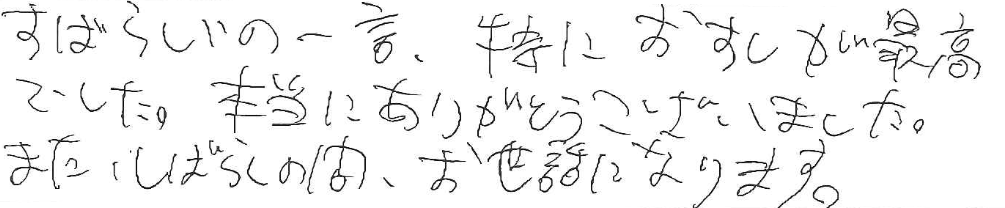 すばらしいの一言、特におすしが最高
でした。本当にありがとうございました。
また、しばらくの間、お世話になります。